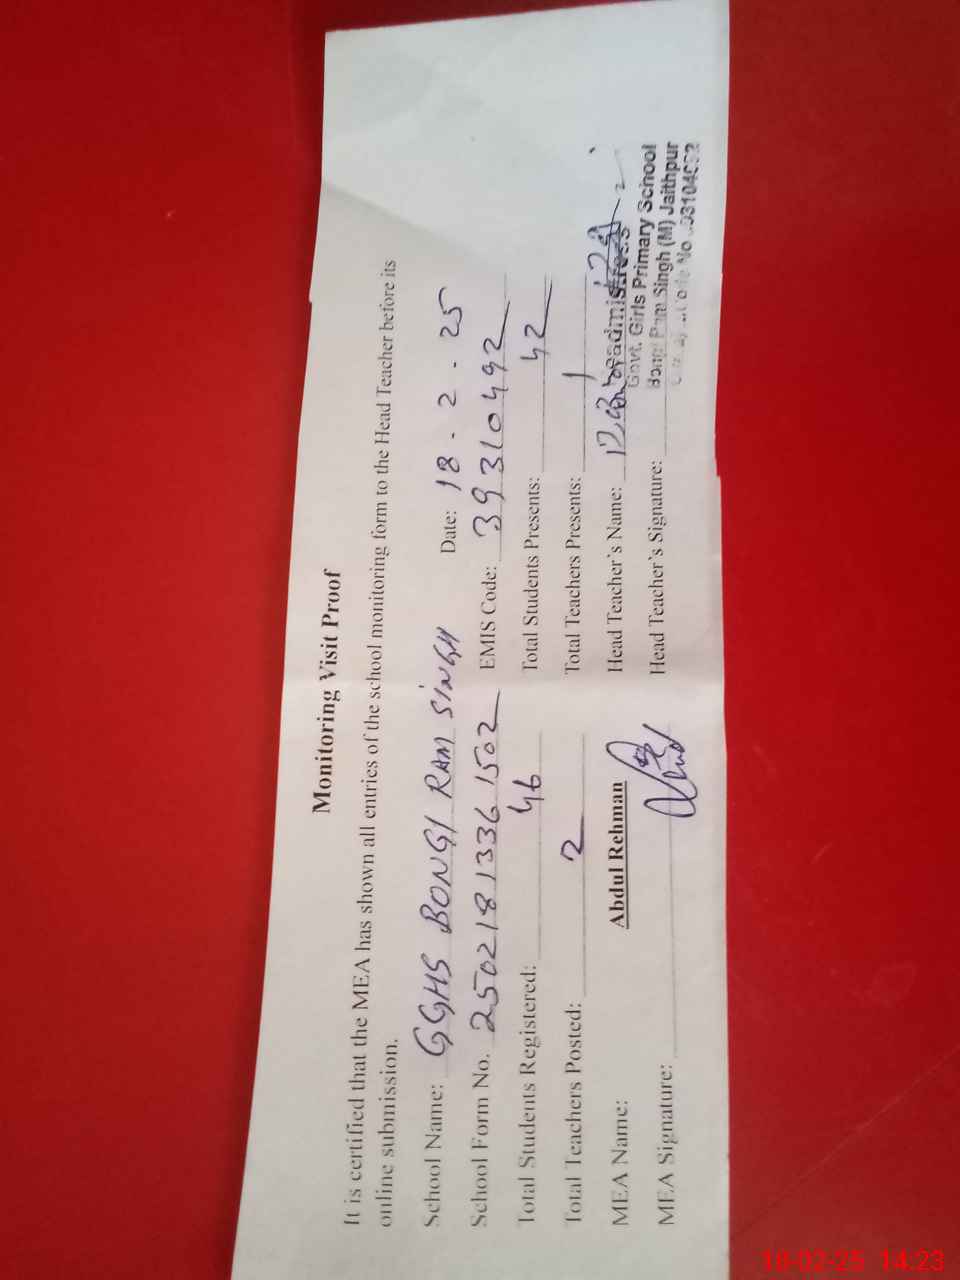 Monitoring Visit Proof
It is certified that the MEA has shown all entries of the school monitoring form to the Head Teacher before its
online submission.
School Name: GGHS BONGI RAM SINGH Date: 18 - 2 - 25
School Form No. 25021813361502 EMIS Code: 39310492
Total Students Registered: 46 Total Students Presents: 42
Total Teachers Posted: 2 Total Teachers Presents: 1
MEA Name: Abdul Rehman Head Teacher's Name:
MEA Signature: Head Teacher's Signature:
Headmistress
Govt. Girls Primary School
Bongi Ram Singh (M) Jaithpur
18-02-25 14:23